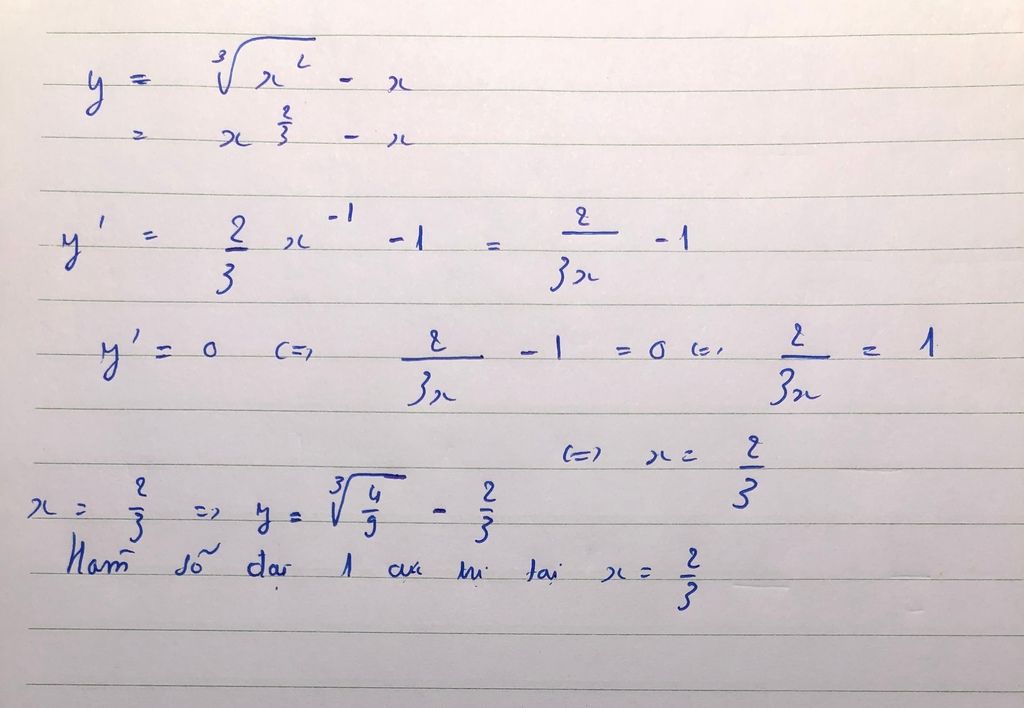 y = ∛(x²) - x
= x^(2/3) - x
y' = 2/3 x^(-1) - 1 = 2/(3x) - 1
y' = 0 (=) 2/(3x) - 1 = 0 (=) 2/(3x) = 1
(=) x = 2/3
x = 2/3 => y = ∛(4/9) - 2/3
Ham số đạt 1 cực trị tại x = 2/3